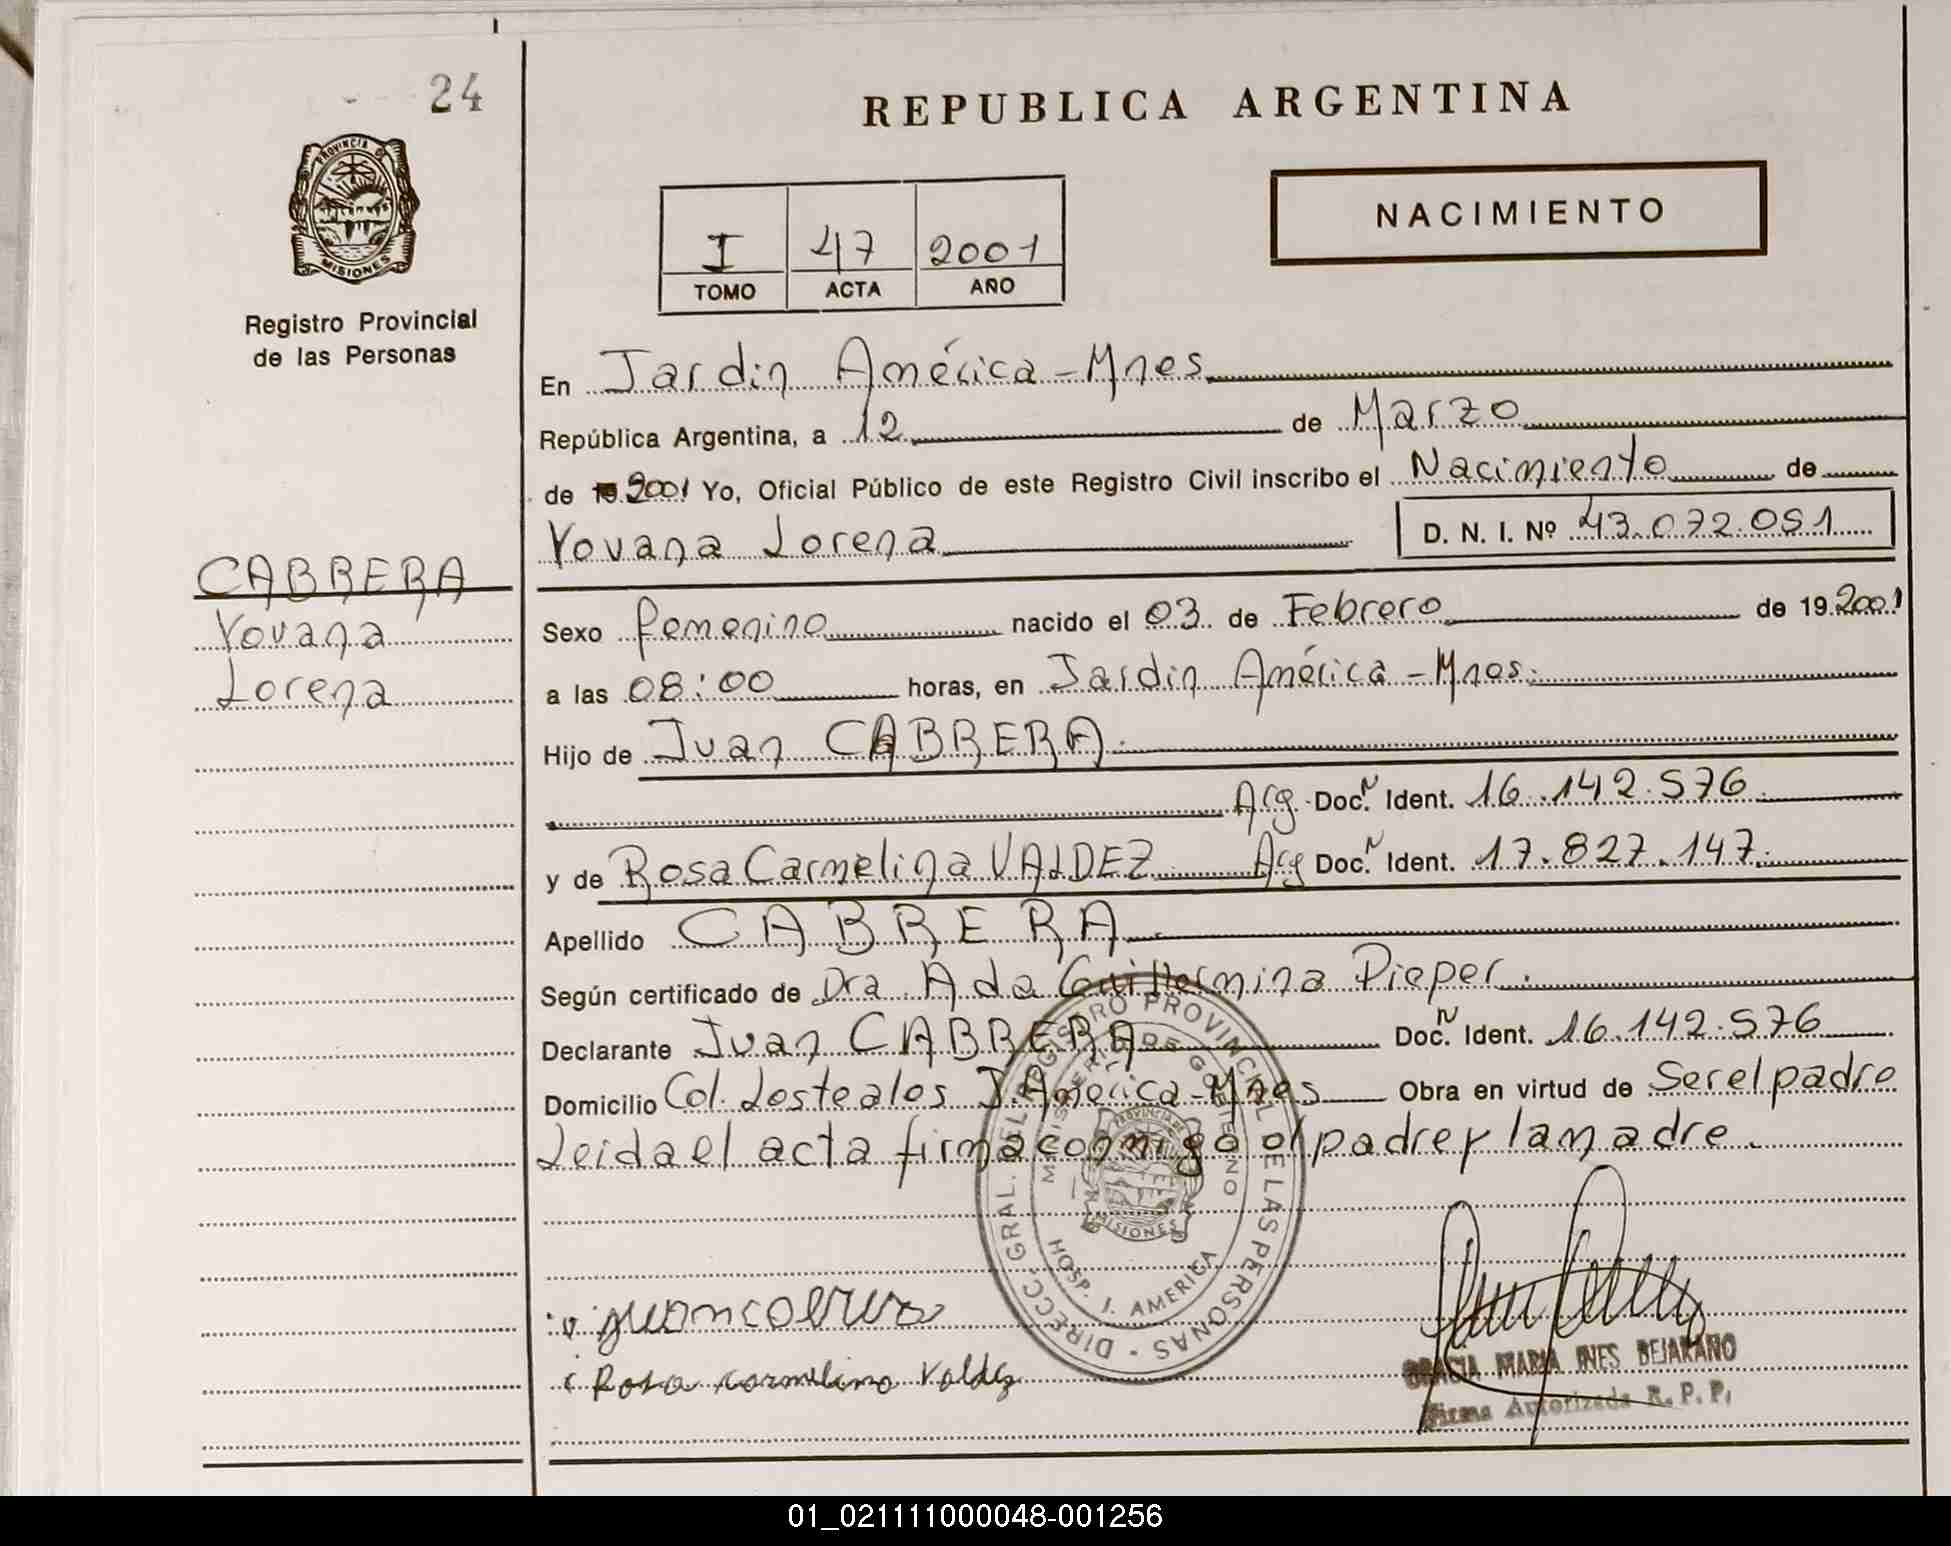 24
REPUBLICA ARGENTINA
PROVINCIA DE
MISIONES
NACIMIENTO
I 47 2001
TOMO ACTA AÑO
Registro Provincial
de las Personas
En Jardin América - Mnes
República Argentina, a 12 de Marzo
de 2001 Yo, Oficial Público de este Registro Civil inscribo el Nacimiento de
Yovana Lorena D. N. I. Nº 43.072.051
CABRERA
Yovana
Lorena
Sexo femenino nacido el 03 de Febrero de 19 2001
a las 08:00 horas, en Jardin América - Mnes.
Hijo de Juan CABRERA.
Arg. Doc. N Ident. 16.142.576
y de Rosa Carmelina VALDEZ Arg Doc. N Ident. 17.827.147.
Apellido CABRERA
Según certificado de Dra. Ada Guillermina Pieper.
Declarante Juan CABRERA Doc. N Ident. 16.142.576
Domicilio Col. Los tealos J. América - Mnes Obra en virtud de Ser el padre
Leida el acta firma conmigo el padre y la madre.
DIRECC. GRAL. DEL REGISTRO PROVINCIAL DE LAS PERSONAS
MINISTERIO DE GOBIERNO
PROVINCIA DE
MISIONES
HOSP. J. AMERICA
Rosa Carmelina Valdez
GRACIA MARIA INES BEJARANO
Firma Autorizada R. P. P.
01_021111000048-001256